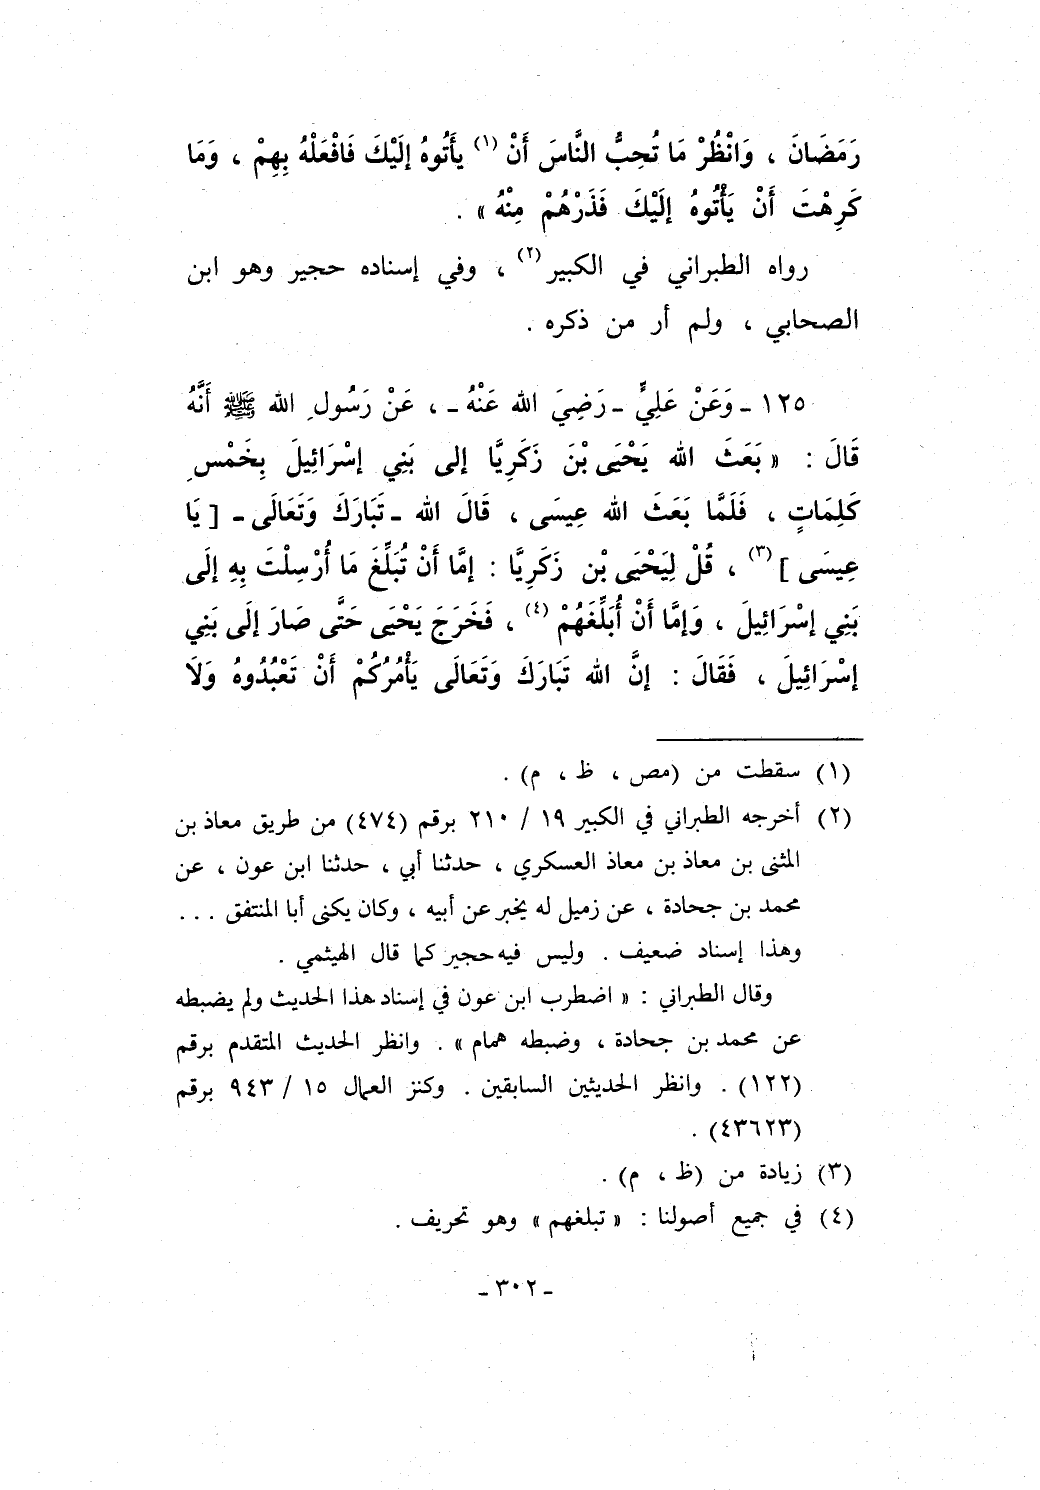 رَمَضَانَ ، وَانْظُرْ مَا تُحِبُّ النَّاسَ أَنْ (١) يأَتُوهُ إلَيْكَ فَافْعَلْهُ بِهِمْ ، وَمَا
كَرِهْتَ أَنْ يَأْتُوهُ إلَيْكَ فَذَرْهُمْ مِنْهُ » .
رواه الطبراني في الكبير (٢) ، وفي إسناده حجير وهو ابن
الصحابي ، ولم أر من ذكره .
١٢٥ ـ وَعَنْ عَلِيٍّ ـ رَضِيَ الله عَنْهُ ـ ، عَنْ رَسُولِ الله ﷺ أَنَّهُ
قَالَ : « بَعَثَ الله يَحْيَى بْنَ زَكَرِيَّا إلى بَنِي إسْرَائِيلَ بِخَمْسِ
كَلِمَاتٍ ، فَلَمَّا بَعَثَ الله عِيسَى ، قَالَ الله ـ تَبَارَكَ وَتَعَالَى ـ [ يَا
عِيسَى ] (٣) ، قُلْ لِيَحْيَى بْن زَكَرِيَّا : إمَّا أَنْ تُبَلِّغَ مَا أُرْسِلْتَ بِهِ إلَى
بَنِي إسْرَائِيلَ ، وَإمَّا أَنْ أُبَلِّغَهُمْ (٤) ، فَخَرَجَ يَحْيَى حَتَّى صَارَ إلَى بَنِي
إسْرَائِيلَ ، فَقَالَ : إنَّ الله تَبَارَكَ وَتَعَالَى يَأْمُرُكُمْ أَنْ تَعْبُدُوهُ وَلَا
(١) سقطت من (مص ، ظ ، م) .
(٢) أخرجه الطبراني في الكبير ١٩ / ٢١٠ برقم (٤٧٤) من طريق معاذ بن
المثنى بن معاذ بن معاذ العسكري ، حدثنا أبي ، حدثنا ابن عون ، عن
محمد بن جحادة ، عن زميل له يخبر عن أبيه ، وكان يكنى أبا المنتفق ...
وهذا إسناد ضعيف . وليس فيه حجير كما قال الهيثمي .
وقال الطبراني : « اضطرب ابن عون في إسناد هذا الحديث ولم يضبطه
عن محمد بن جحادة ، وضبطه همام » . وانظر الحديث المتقدم برقم
(١٢٢) . وانظر الحديثين السابقين . وكنز العمال ١٥ / ٩٤٣ برقم
(٤٣٦٢٣) .
(٣) زيادة من (ظ ، م) .
(٤) في جميع أصولنا : « تبلغهم » وهو تحريف .
ـ ٣٠٢ ـ